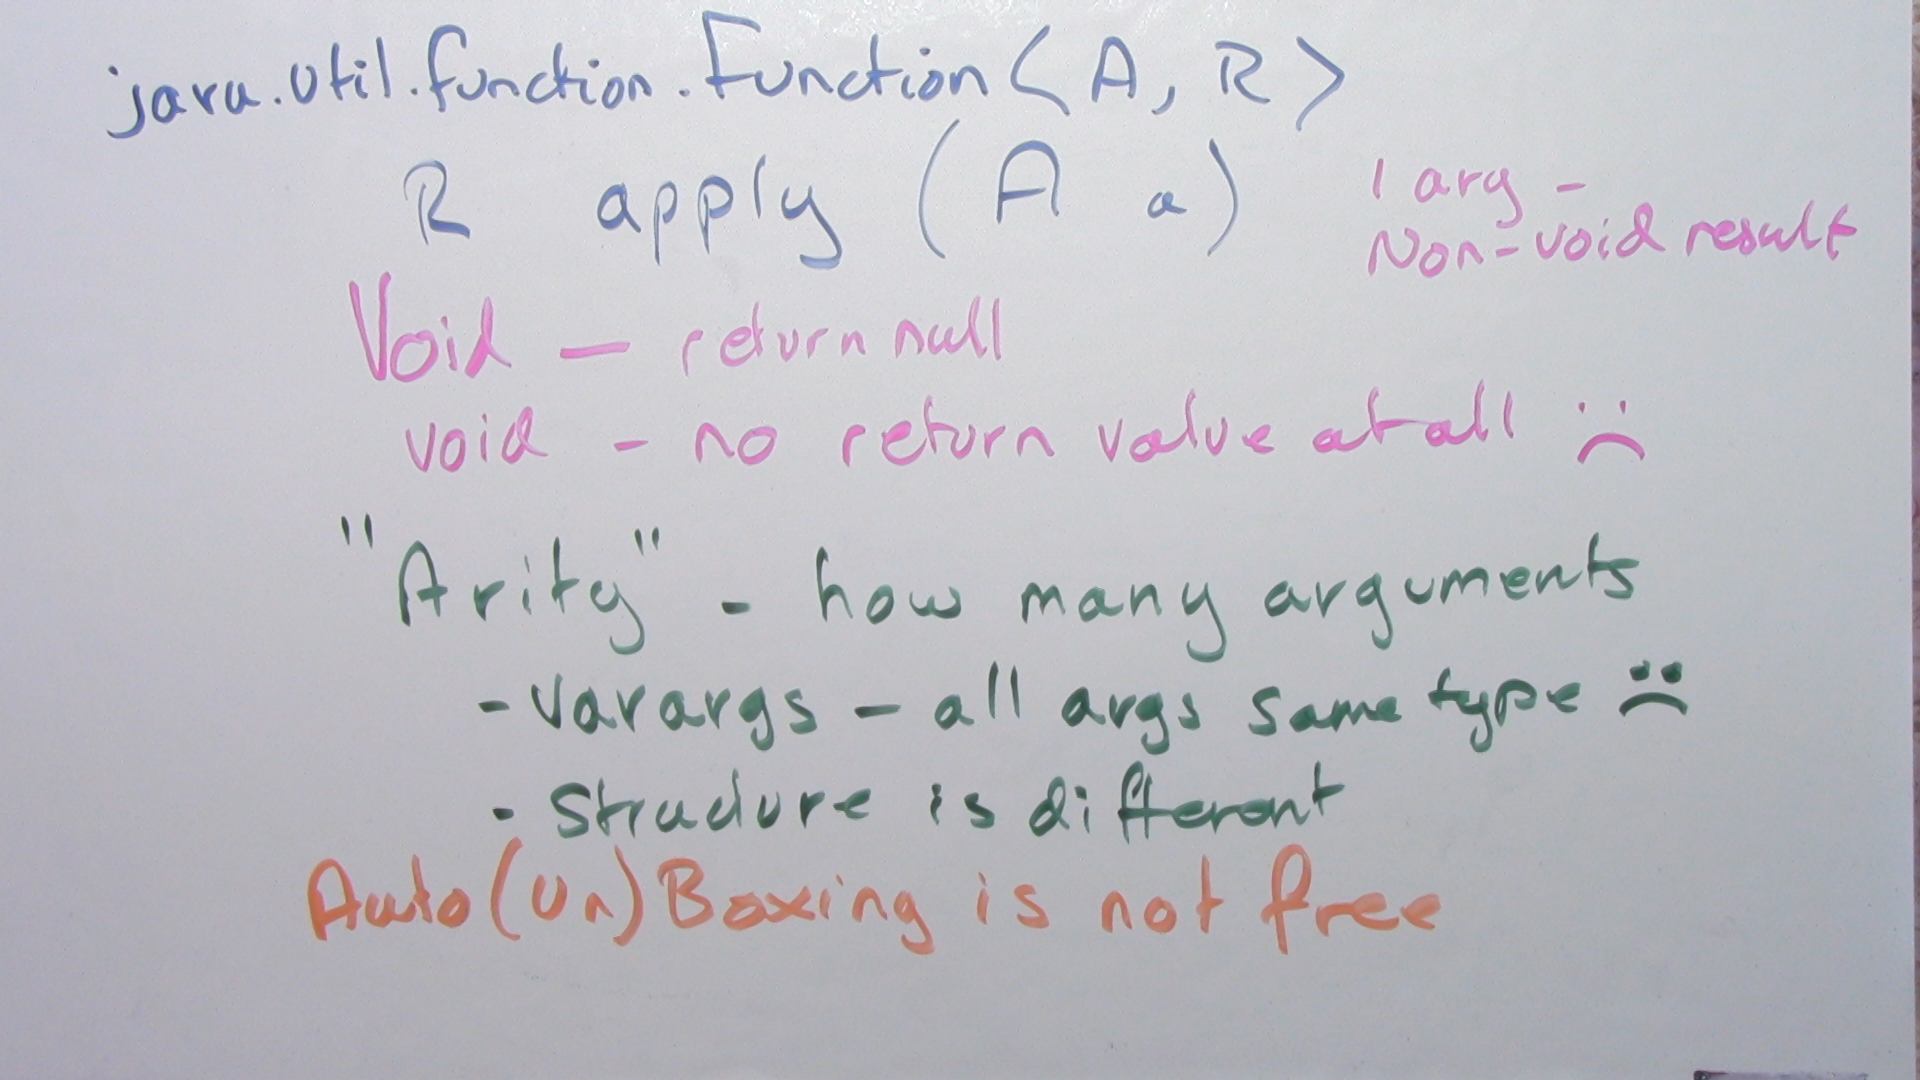 java.util.function.Function<A, R>
R apply (A a)
1 arg -
Non-void result
Void — return null
void - no return value at all :(
"Arity" - how many arguments
- varargs - all args same type :(
- Structure is different
Auto(Un)Boxing is not free